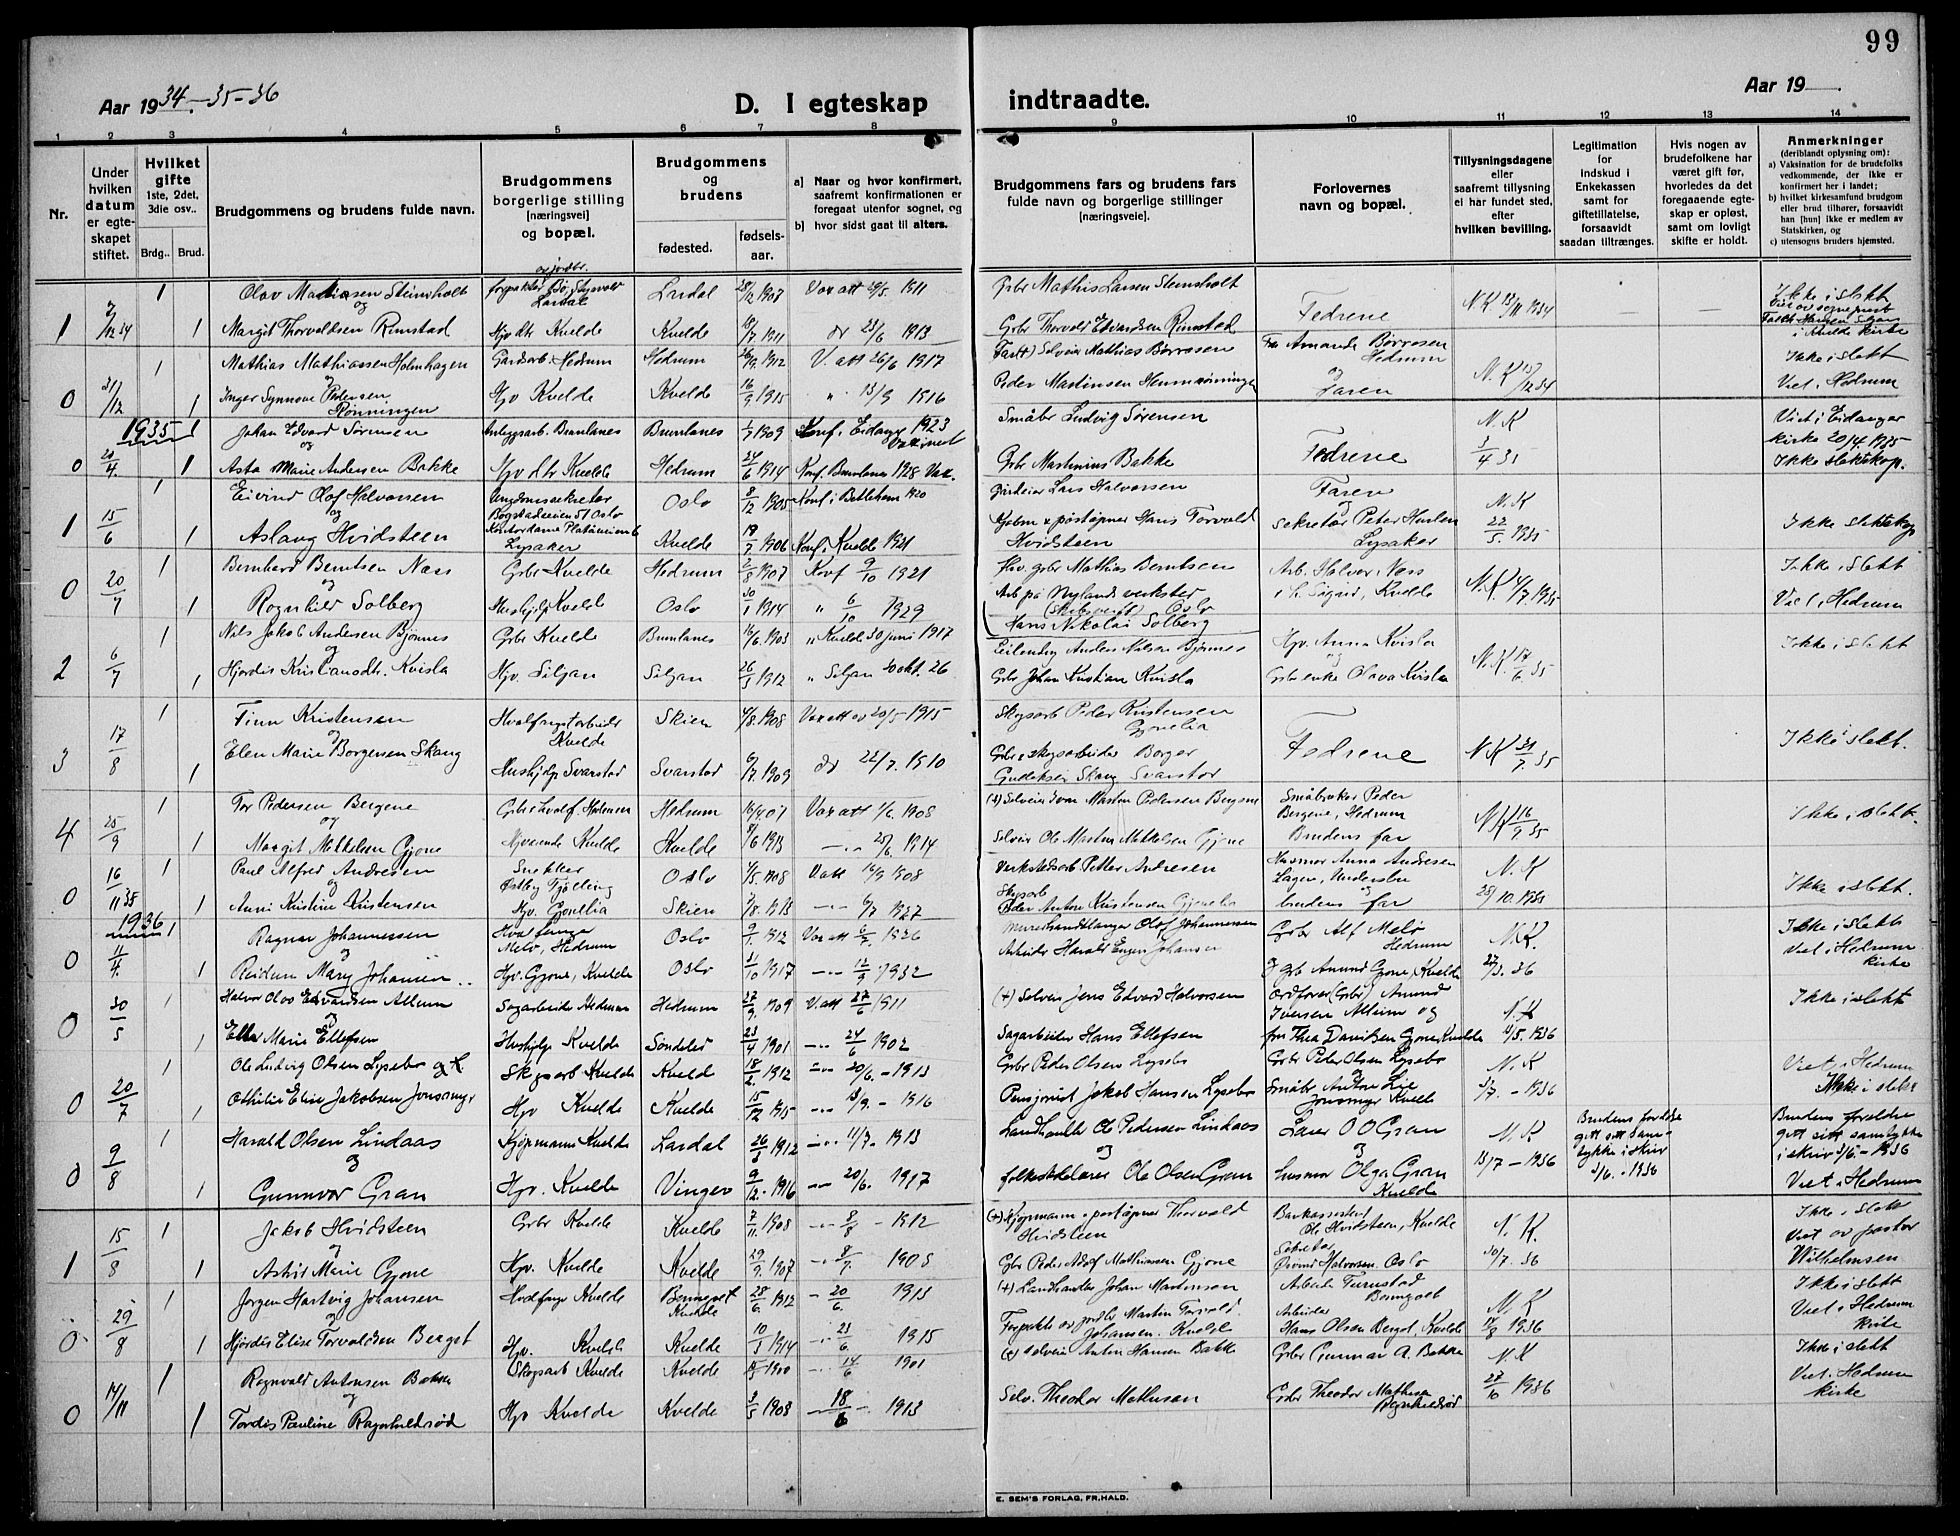 99
Aar 1934-35-36
D. I egteskap
indtraadte.
Aar 19
1 2 3 4 5 6 7 8 9 10 11 12 13 14
Nr.
Under hvilken datum er egteskapet stiftet.
Hvilket gifte 1ste, 2det, 3die osv..
Brdg.. Brud.
Brudgommens og brudens fulde navn.
Brudgommens borgerlige stilling [næringsvei] og bopæl.
Brudgommens og brudens
fødested.
fødsels-aar.
a) Naar og hvor konfirmert, saafremt konfirmationen er foregaat utenfor sognet, og
b) hvor sidst gaat til alters.
Brudgommens fars og brudens fars fulde navn og borgerlige stillinger [næringsveie].
Forlovernes navn og bopæl.
Tillysningsdagene eller saafremt tillysning ei har fundet sted, efter hvilken bevilling.
Legitimation for indskud i Enkekassen samt for giftetillatelse, forsaavidt saadan tiltrænges.
Hvis nogen av brudefolkene har været gift før, hvorledes da det foregaaende egteskap er opløst, samt om lovligt skifte er holdt.
Anmerkninger (deriblandt oplysning om):
a) Vaksination for de brudefolks vedkommende, der ikke er konfirmert her i landet;
b) hvilket kirkesamfund brudgom eller brud tilhører, forsaavidt han [hun] ikke er medlem av Statskirken, og
c) utensogns bruders hjemsted.
1 Olav Mathiasen Steinsholt Lardal 28/12 1907 Vax att 29/5 1911 Grbr Mathis Larsen Steinsholt
og Fedrene N.K 13/11 1934 Ikke i slekt
1 2/12 34 1 Margit Thorvaldsen Rimstad Hjv dtr Kvelde Kvelde 18/7 1911 do 23/6 1913 Grbr Thorvald Edvardsen Rimstad
1 Mathias Mathiassen Holmhagen Gårdarb. Hedrum Hedrum 26/9 1912 V. att 26/6 1917 Mathias Børresen Fru Amanda Børresen Hedrum Ikke i slekt
0 31/12 1 Inger Synnøve Pedersen Rønningen Hjv Kvelde Kvelde 16/9 1915 " 13/9 1916 Peder Martinsen og Faren N.K 13/12 34 Viet i Hedrum
1935 1 Johan Edvard Sørensen Anlegsarb. Brunlanes Brunlanes 1/7 1909 Konf. i Eidanger 1923 Vaxinert Småbr Ludvig Sørensen N.K Viet i Eidanger kirke 20/4 1935
0 20/4 1 Asta Marie Andersen Bakke Hjv dtr Kvelde Hedrum 24/6 1914 Konf Brunlanes 1928 Vax. Grbr Martinius Bakke Fedrene 3/4 35 Ikke slektskap.
1 Eivind Olof Halvorsen Ungdomssekretær Bogstadveien 51 Oslo Oslo 8/12 1905 Konf i Betlehem 1920 Gårdeier Lars Halvorsen Faren og N.K
1 15/6 1 Aslaug Hvidsteen Kontordame Platåveien 6 Lysaker Kvelde 19/7 1906 Konf i Kvelde 1921 Kjøbm & postopner Hans Torvald Hvidsteen Sekretær Peter Lysaker 22/5 1935 Ikke slektskap
1 Bernhard Berntsen Næss Grbr Kvelde Hedrum 2/8 1907 Konf 9/10 1921 Hv. grbr Mathias Berntsen Arb. Halvor Næss Ikke i slekt
0 20/7 1 Ragnhild Solberg Hushjelp Kvelde Oslo 30/1 1914 " 6/10 1929 Arb på Nylands verksted (skibsverft) Oslo Hans Nikolai Solberg Kvelde N.K. 4/7 1935 Viet i Hedrum
1 Nils Jakob Andersen Bjønnes Grbr Kvelde Brunlanes 16/6 1903 " Kvelde 30 juni 1917 Anders Nilsen Bjønnes Hjv. Anna Kvisla Ikke i slekt
2 6/7 1 Hjørdis Kristiansdtr. Kvisla Hjv. Siljan Siljan 26/3 1912 " Siljan 20 okt. 26 Grbr Johan Kristian Kvisla og Grbr enke Olava Kvisla N.K. 17/6 35
1 Finn Kristensen Hvalfangstarbeider Kvelde Skien 4/8 1908 Vax att av 20/5 1915 Skogsarb Peder Kristensen Gjonelia
3 17/8 1 Elen Marie Borgersen Skaug Hushjelp Svarstad Svarstad 6/7 1909 do 22/7 1910 Grbr & skogsarbeider Borger Skaug Svarstad Fedrene N.K 31/7 35 Ikke i slekt.
1 Tor Pedersen Bergene Hedrum 16/4 07 Vax att 1/6 1908 (+) Selveier Ivar Martin Pedersen Bergene Småbruker Peder Bergene, Hedrum Ikke i slekt.
4 25/9 1 Margit Mikkelsen Gjone Hjvarende Kvelde Kvelde 8/6 1913 25/6 1914 Selveier Ole Martin Mikkelsen Gjone Brudens far N.K 16/9 35
1 Paul Alfred Andresen Snekker Østby Tjølling Oslo 4/5 1908 V att 14/9 1908 Verkstedsarb Petter Andresen Husmor Anna Andresen N.K
0 16/11 35 1 Anni Kristine Kristensen Hjv. Gjonelia Skien 7/8 1913 6/7 1927 Skogsarb Peder Anton Kristensen Gjonelia og brudens far 28/10 1935 Ikke i slekt.
1936 1 Ragnar Johannessen Hvalfanger Melø, Hedrum Oslo 9/1 1912 Vax att 6/7 1926 Murerhandlanger Olof Johannessen Grbr Alf Melø Hedrum N.K. Ikke i slekt
0 11/4 1 Reidun Mary Johansen Hjv. Gjone, Kvelde Oslo 31/10 1917 12/9 1932 Arbeider Harald Eugen Johansen og grb Amund Gjone, Kvelde 27/3. 36 Viet i Hedrum kirke
1 Halvor Olav Edvardsen Allum Sagarbeider Hedrum Hedrum 27/9 1909 V. att 27/6 1911 (+) Selveier Jens Edvard Halvorsen Ordfører (Grbr) Amund Iversen Allum og Ikke i slekt
0 30/5 1 Ella Marie Ellefsen Hushjelp Kvelde Søndeled 23/4 1901 24/6 1902 Sagarbeider Hans Ellefsen fru Thea Davidsen Gjone, Kvelde N.K 11/5. 1936
1 Ole Ludvig Olsen Lysebo og Skogsarb Kvelde Kvelde 18/2 1912 20/6. - 1913 Grbr Peder Olsen Lysebo Grbr Peder Olsen Lysebo N.K Viet i Hedrum
0 20/7 1 Othilie Elise Jakobsen Jonsmyr Hjv Kvelde Kvelde 15/12 1915 18/9. - 1916 Pensjonist Jakob Hansen Lysebo Småbr Anton Lie Jonsmyr Kvelde 3/7. - 1936 Ikke i slekt
1 Harald Olsen Lindaas Kjøpmann Kvelde Lardal 26/3 1912 11/7. 1913 Landhandler Ole Pedersen Lindaas Lærer O O Gran N.K Brudens foreldre gitt sitt samtykke i skriv 3/6. - 1936 Brudens foreldre gitt sitt samtykke i skriv 3/6 - 1936
0 9/8 1 Gunnvor Gran Hjv. Kvelde Vinger 9/12. 1916 20/6. 1917 folkeskolelærer Ole Olsen Gran og husmor Olga Gran Kvelde 18/7 - 1936 Viet i Hedrum
1 Jakob Hvidsteen Grbr Kvelde Kvelde 7/11 1908 8/8 - 1912 (+) Kjøpmann & postopner Thorvald Hvidsteen Bankassistent Ole Hvidsteen, Kvelde N.K. Ikke i slekt
1 15/8 1 Astrid Marie Gjone Hjv. Kvelde Kvelde 29/9. 1907 8/7. 1908 Grbr Peder Adolf Mathiassen Gjone Sekretær Øivind Halvorsen Oslo 30/7. 36 Viet av pastor Wilhelmsen
1 Jørgen Hartvig Johansen Hvalfanger Kvelde Kvelde 28/6. 1912 20/6. 1913 (+) Landhandler Johan Martinsen N.K Ikke i slekt
0 29/8 1 Hjørdis Elise Torvaldsen Bergst Hjv. Kvelde Kvelde 10/3 1914 23/6. 1915 Forpakter av jordbr Martin Torvald Johansen. Kvelde Arbeider Hans Olsen Bergst, Kvelde 17/8 1936 Viet i Hedrum kirke
1 Ragnvald Antonsen Bakke Skogsarb Kvelde Kvelde 1900 14/6 1901 (+) Selveier Anton Hansen Bakke Grbr Gunnar A. Bakke N.K Ikke i slekt
0 14/11 1 Tordis Pauline Ragnhildsrød Hjv Kvelde Kvelde 3/5 1908 18/6 - 1913 Selv. Theodor Mathisen Grbr Theodor Mathisen Ragnhildsrød 27/10 1936 Viet. Hedrum kirke
E. SEM'S FORLAG, FR.HALD.